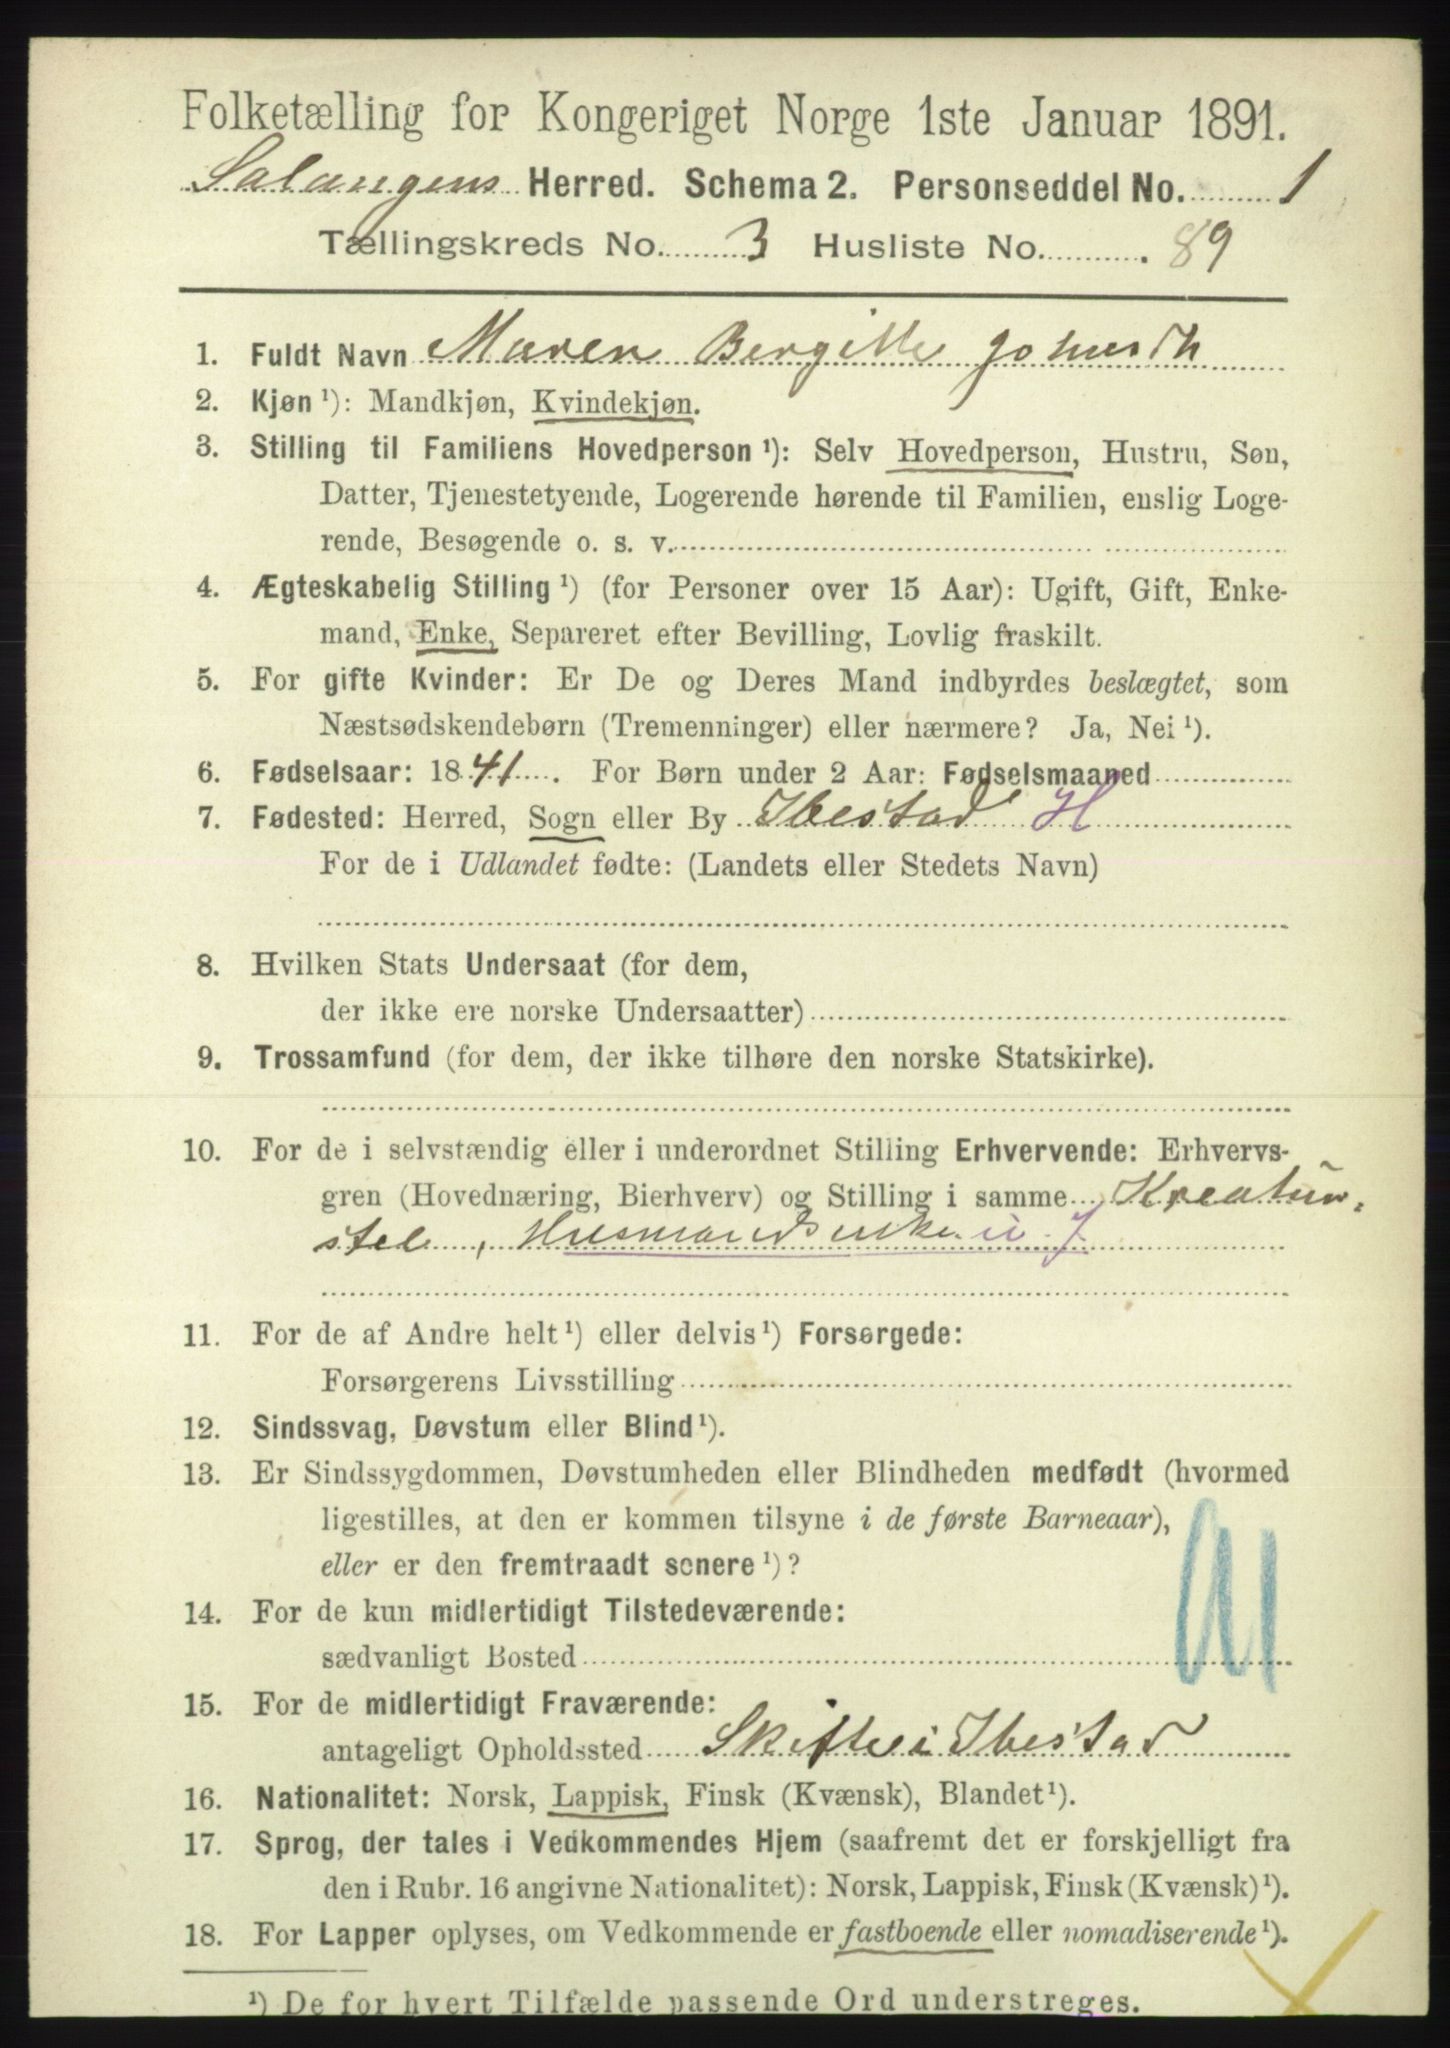 Folketælling for Kongeriget Norge 1ste Januar 1891.
Salangens Herred. Schema 2. Personseddel No. 1
Tællingskreds No. 3 Husliste No. 89
1. Fuldt Navn Maren Bergitte Johnsdt
2. Kjøn ¹): Mandkjøn, Kvindekjøn.
3. Stilling til Familiens Hovedperson ¹): Selv Hovedperson, Hustru, Søn,
Datter, Tjenestetyende, Logerende hørende til Familien, enslig Loge-
rende, Besøgende o. s. v.
4. Ægteskabelig Stilling ¹) (for Personer over 15 Aar): Ugift, Gift, Enke-
mand, Enke, Separeret efter Bevilling, Lovlig fraskilt.
5. For gifte Kvinder: Er De og Deres Mand indbyrdes beslægtet, som
Næstsødskendebørn (Tremenninger) eller nærmere? Ja, Nei ¹).
6. Fødselsaar: 1841. For Børn under 2 Aar: Fødselsmaaned
7. Fødested: Herred, Sogn eller By Ibestad H
For de i Udlandet fødte: (Landets eller Stedets Navn)
8. Hvilken Stats Undersaat (for dem,
der ikke ere norske Undersaatter)
9. Trossamfund (for dem, der ikke tilhøre den norske Statskirke).
10. For de i selvstændig eller i underordnet Stilling Erhvervende: Erhvervs-
gren (Hovednæring, Bierhverv) og Stilling i samme Kreatur-
stel, Husmandsenke u. J
11. For de af Andre helt ¹) eller delvis ¹) Forsørgede:
Forsørgerens Livsstilling
12. Sindssvag, Døvstum eller Blind ¹).
13. Er Sindssygdommen, Døvstumheden eller Blindheden medfødt (hvormed
ligestilles, at den er kommen tilsyne i de første Barneaar),
eller er den fremtraadt senere ¹)?
14. For de kun midlertidigt Tilstedeværende:
sædvanligt Bosted
15. For de midlertidigt Fraværende:
antageligt Opholdssted Skifte i Ibestad
16. Nationalitet: Norsk, Lappisk, Finsk (Kvænsk), Blandet ¹).
17. Sprog, der tales i Vedkommendes Hjem (saafremt det er forskjelligt fra
den i Rubr. 16 angivne Nationalitet): Norsk, Lappisk, Finsk (Kvænsk) ¹).
18. For Lapper oplyses, om Vedkommende er fastboende eller nomadiserende ¹).
¹) De for hvert Tilfælde passende Ord understreges.